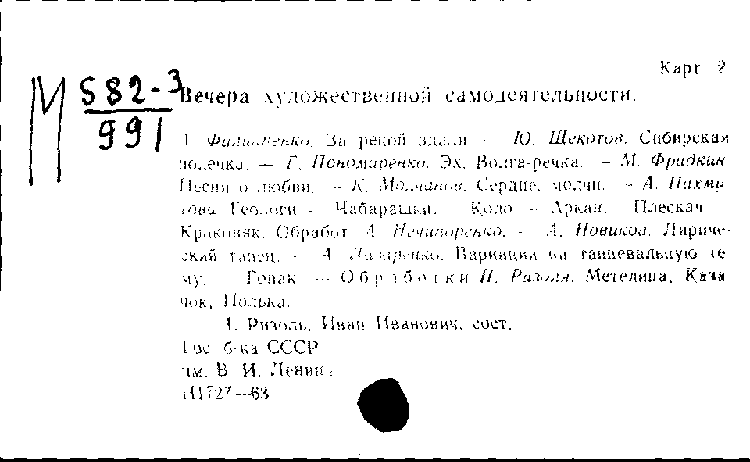 Карт 2
М 582-3
991
Вечера художественной самодеятельности.
1. Филипенко. За рекой вдали — Ю. Щекотов. Сибирская
полечка. — Г. Пономаренко. Эх, Волга-речка. — М. Фрадкин
Песня о любви. — К. Молчанов. Сердце, молчи. — А. Пахму
това Геологи — Чабарашки. — Коло — Аркан. — Плескач —
Краковяк. Обработ А. Нечипоренко. — А. Новиков. Лириче-
ский танец. — А. Лазаренко. Вариации на танцевальную те
му. — Гопак — Обработки И. Ризоля. Метелица, Каза
чок, Полька.
1. Ризоль, Иван Иванович, сост.
Гос. б-ка СССР
им. В. И. Ленина
1727—63